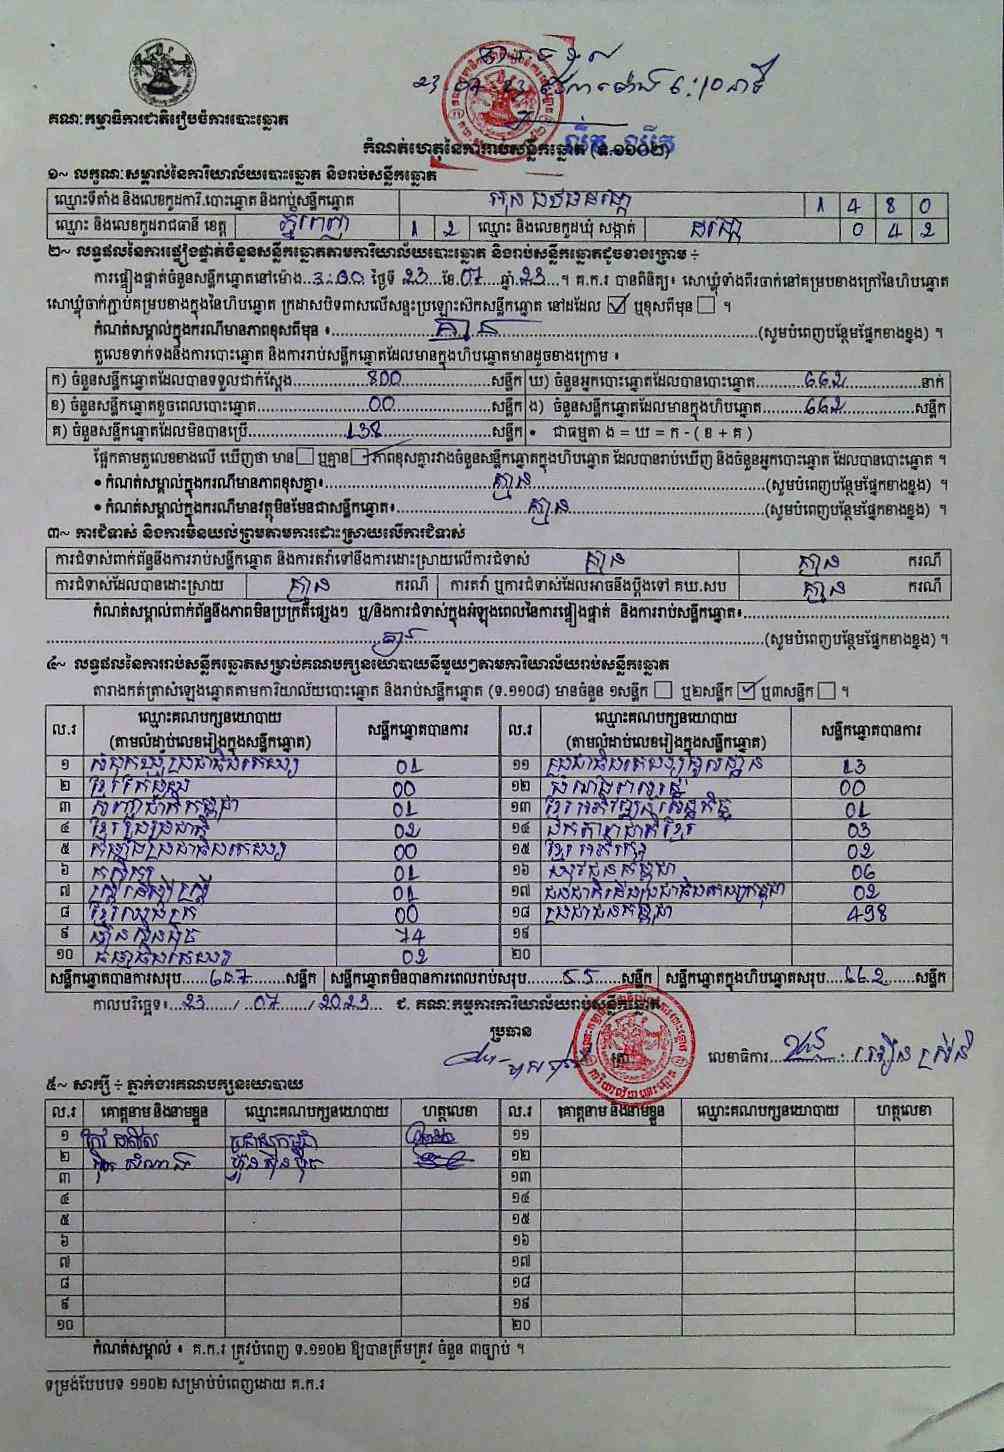 គណៈកម្មាធិការជាតិរៀបចំការបោះឆ្នោត
កំណត់ហេតុនៃការរាប់សន្លឹកឆ្នោត (ទ.១១០២)
១~ លក្ខណៈសម្គាល់នៃការិយាល័យបោះឆ្នោត និងរាប់សន្លឹកឆ្នោត
ឈ្មោះទីតាំង និងលេខកូដការិ.បោះឆ្នោត និងរាប់សន្លឹកឆ្នោត 1 4 8 0
ឈ្មោះ និងលេខកូដរាជធានី ខេត្ត ភ្នំពេញ 1 2 ឈ្មោះ និងលេខកូដឃុំ សង្កាត់ ដង្កោ 0 4 2
២~ លទ្ធផលនៃការផ្ទៀងផ្ទាត់ចំនួនសន្លឹកឆ្នោតតាមការិយាល័យបោះឆ្នោត និងរាប់សន្លឹកឆ្នោតដូចខាងក្រោម ÷
ការផ្ទៀងផ្ទាត់ចំនួនសន្លឹកឆ្នោតនៅម៉ោង 3:00 ថ្ងៃទី 23 ខែ 07 ឆ្នាំ 23 ។ គ.ក.រ បានពិនិត្យ៖ សោឃ្លុំទាំងពីរចាក់នៅគម្របខាងក្រៅនៃហិបឆ្នោត
សោឃ្លុំចាក់ភ្ជាប់គម្របខាងក្នុងនៃហិបឆ្នោត ក្រដាសបិទពាសលើសន្ទះប្រឡោះសិកសន្លឹកឆ្នោត នៅដដែល ☑ ឬខុសពីមុន ☐ ។
កំណត់សម្គាល់ក្នុងករណីមានភាពខុសពីមុន ៖ គ្មាន (សូមបំពេញបន្ថែមផ្នែកខាងខ្នង) ។
តួលេខទាក់ទងនឹងការបោះឆ្នោត និងការរាប់សន្លឹកឆ្នោតដែលមានក្នុងហិបឆ្នោតមានដូចខាងក្រោម ៖
ក) ចំនួនសន្លឹកឆ្នោតដែលបានទទួលជាក់ស្តែង 800 សន្លឹក ឃ) ចំនួនអ្នកបោះឆ្នោតដែលបានបោះឆ្នោត 662 នាក់
ខ) ចំនួនសន្លឹកឆ្នោតខូចពេលបោះឆ្នោត 00 សន្លឹក ង) ចំនួនសន្លឹកឆ្នោតដែលមានក្នុងហិបឆ្នោត 662 សន្លឹក
គ) ចំនួនសន្លឹកឆ្នោតដែលមិនបានប្រើ 138 សន្លឹក • ជាធម្មតា ង = ឃ = ក - ( ខ + គ )
ផ្អែកតាមតួលេខខាងលើ ឃើញថា មាន ☐ ឬគ្មាន ☑ ភាពខុសគ្នារវាងចំនួនសន្លឹកឆ្នោតក្នុងហិបឆ្នោត ដែលបានរាប់ឃើញ និងចំនួនអ្នកបោះឆ្នោត ដែលបានបោះឆ្នោត ។
• កំណត់សម្គាល់ក្នុងករណីមានភាពខុសគ្នា៖ គ្មាន (សូមបំពេញបន្ថែមផ្នែកខាងខ្នង) ។
• កំណត់សម្គាល់ក្នុងករណីមានវត្ថុមិនមែនជាសន្លឹកឆ្នោត៖ គ្មាន (សូមបំពេញបន្ថែមផ្នែកខាងខ្នង) ។
៣~ ការជំទាស់ និងការមិនយល់ព្រមតាមការដោះស្រាយលើការជំទាស់
ការជំទាស់ពាក់ព័ន្ធនឹងការរាប់សន្លឹកឆ្នោត និងការតវ៉ាទៅនឹងការដោះស្រាយលើការជំទាស់ គ្មាន គ្មាន ករណី
ការជំទាស់ដែលបានដោះស្រាយ គ្មាន ករណី ការតវ៉ា ឬការជំទាស់ដែលអាចនឹងប្តឹងទៅ គឃ.សប គ្មាន ករណី
កំណត់សម្គាល់ពាក់ព័ន្ធនឹងភាពមិនប្រក្រតីផ្សេងៗ ឬ/និងការជំទាស់ក្នុងអំឡុងពេលនៃការផ្ទៀងផ្ទាត់ និងការរាប់សន្លឹកឆ្នោត៖
គ្មាន (សូមបំពេញបន្ថែមផ្នែកខាងខ្នង) ។
៤~ លទ្ធផលនៃការរាប់សន្លឹកឆ្នោតសម្រាប់គណបក្សនយោបាយនីមួយៗតាមការិយាល័យរាប់សន្លឹកឆ្នោត
តារាងកត់ត្រាសំឡេងឆ្នោតតាមការិយាល័យបោះឆ្នោត និងរាប់សន្លឹកឆ្នោត (ទ.១១០៨) មានចំនួន ១សន្លឹក ☐ ឬ២សន្លឹក ☑ ឬ៣សន្លឹក ☐ ។
ល.រ ឈ្មោះគណបក្សនយោបាយ (តាមលំដាប់លេខរៀងក្នុងសន្លឹកឆ្នោត) សន្លឹកឆ្នោតបានការ ល.រ ឈ្មោះគណបក្សនយោបាយ (តាមលំដាប់លេខរៀងក្នុងសន្លឹកឆ្នោត) សន្លឹកឆ្នោតបានការ
១ សំបុកឃ្មុំប្រជាធិបតេយ្យ 01 ១១ ប្រជាធិបតេយ្យមូលដ្ឋាន 13
២ ខ្មែររួបរួមជាតិ 00 ១២ 00
៣ កម្ពុជា 01 ១៣ ខ្មែរអភិវឌ្ឍន៍សេដ្ឋកិច្ច 01
៤ ខ្មែរ 02 ១៤ ឯកភាពជាតិខ្មែរ 03
៥ កម្លាំងប្រជាធិបតេយ្យ 00 ១៥ ខ្មែរអភិរក្ស 02
៦ កសិករ 01 ១៦ យុវជនកម្ពុជា 06
៧ ស្ត្រីដើម្បីស្ត្រី 01 ១៧ ជនជាតិដើមប្រជាធិបតេយ្យកម្ពុជា 02
៨ ខ្មែរឈប់ក្រ 00 ១៨ ប្រជាជនកម្ពុជា 498
៩ ហ៊្វុនស៊ិនប៉ិច 74 ១៩
១០ ធម្មាធិបតេយ្យ 02 ២០
សន្លឹកឆ្នោតបានការសរុប 607 សន្លឹក សន្លឹកឆ្នោតមិនបានការពេលរាប់សរុប 55 សន្លឹក សន្លឹកឆ្នោតក្នុងហិបឆ្នោតសរុប 662 សន្លឹក
កាលបរិច្ឆេទ៖ 23 / 07 / 2023 ជ. គណៈកម្មការការិយាល័យរាប់សន្លឹកឆ្នោត
ប្រធាន
លេខាធិការ
៥~ សាក្សី ÷ ភ្នាក់ងារគណបក្សនយោបាយ
ល.រ គោត្តនាម និងនាមខ្លួន ឈ្មោះគណបក្សនយោបាយ ហត្ថលេខា ល.រ គោត្តនាម និងនាមខ្លួន ឈ្មោះគណបក្សនយោបាយ ហត្ថលេខា
១ ប្រជាជនកម្ពុជា ១១
២ ហ៊្វុនស៊ិនប៉ិច ១២
៣ ១៣
៤ ១៤
៥ ១៥
៦ ១៦
៧ ១៧
៨ ១៨
៩ ១៩
១០ ២០
កំណត់សម្គាល់ ៖ គ.ក.រ ត្រូវបំពេញ ទ.១១០២ ឱ្យបានត្រឹមត្រូវ ចំនួន ៣ច្បាប់ ។
ទម្រង់បែបបទ ១១០២ សម្រាប់បំពេញដោយ គ.ក.រ